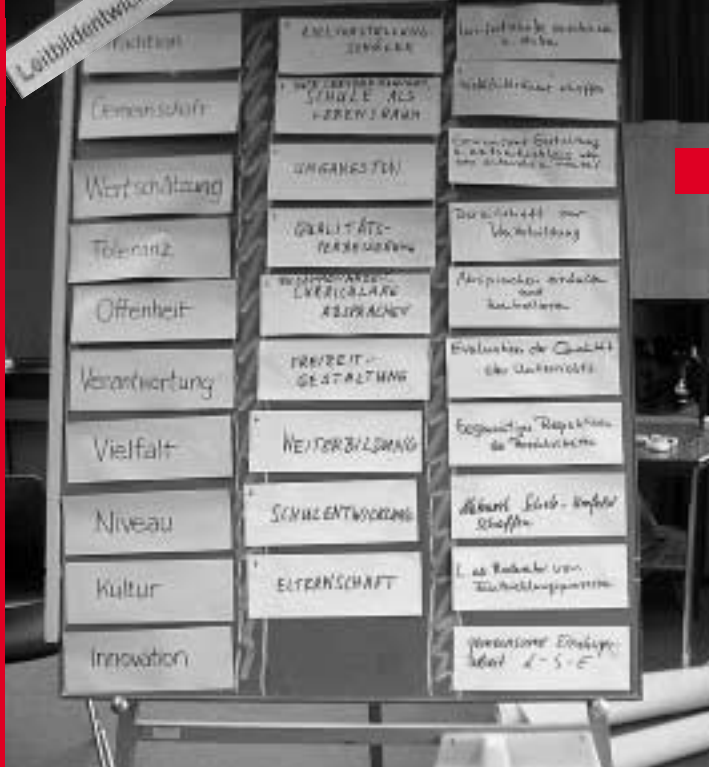 Leitbildentwick
Tradition
Gemeinschaft
Wertschätzung
Toleranz
Offenheit
Verantwortung
Vielfalt
Niveau
Kultur
Innovation
ZIELVORSTELLUNG
SCHÜLER
SCHULE ALS
LEBENSRAUM
UMGANGSTON
QUALITÄTS-
VERBESSERUNG
CURRICULARE
ABSPRACHEN
FREIZEIT-
GESTALTUNG
WEITERBILDUNG
SCHULENTWICKLUNG
ELTERNSCHAFT
schaffen
Gemeinsame Gestaltung
Bereitschaft zur
Weiterbildung
Absprachen einhalten
und
kontrollieren
Evaluation der Qualität
des Unterrichts
Gegenseitiges Respektieren
der
Netzwerk Schule-Umfeld
schaffen
L. als von
Entwicklungsprozessen
gemeinsame Erziehungs-
arbeit L-S-E